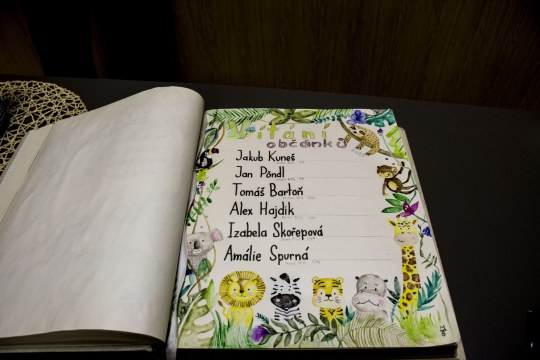 Vítání
občánků
Jakub Kuneš
Jan Pöndl
Tomáš Bartoň
Alex Hajdik
Izabela Skořepová
Amálie Spurná